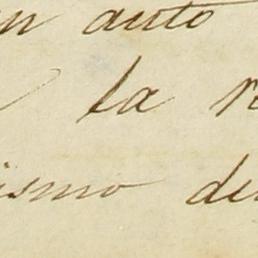 un auto
la
ismo de